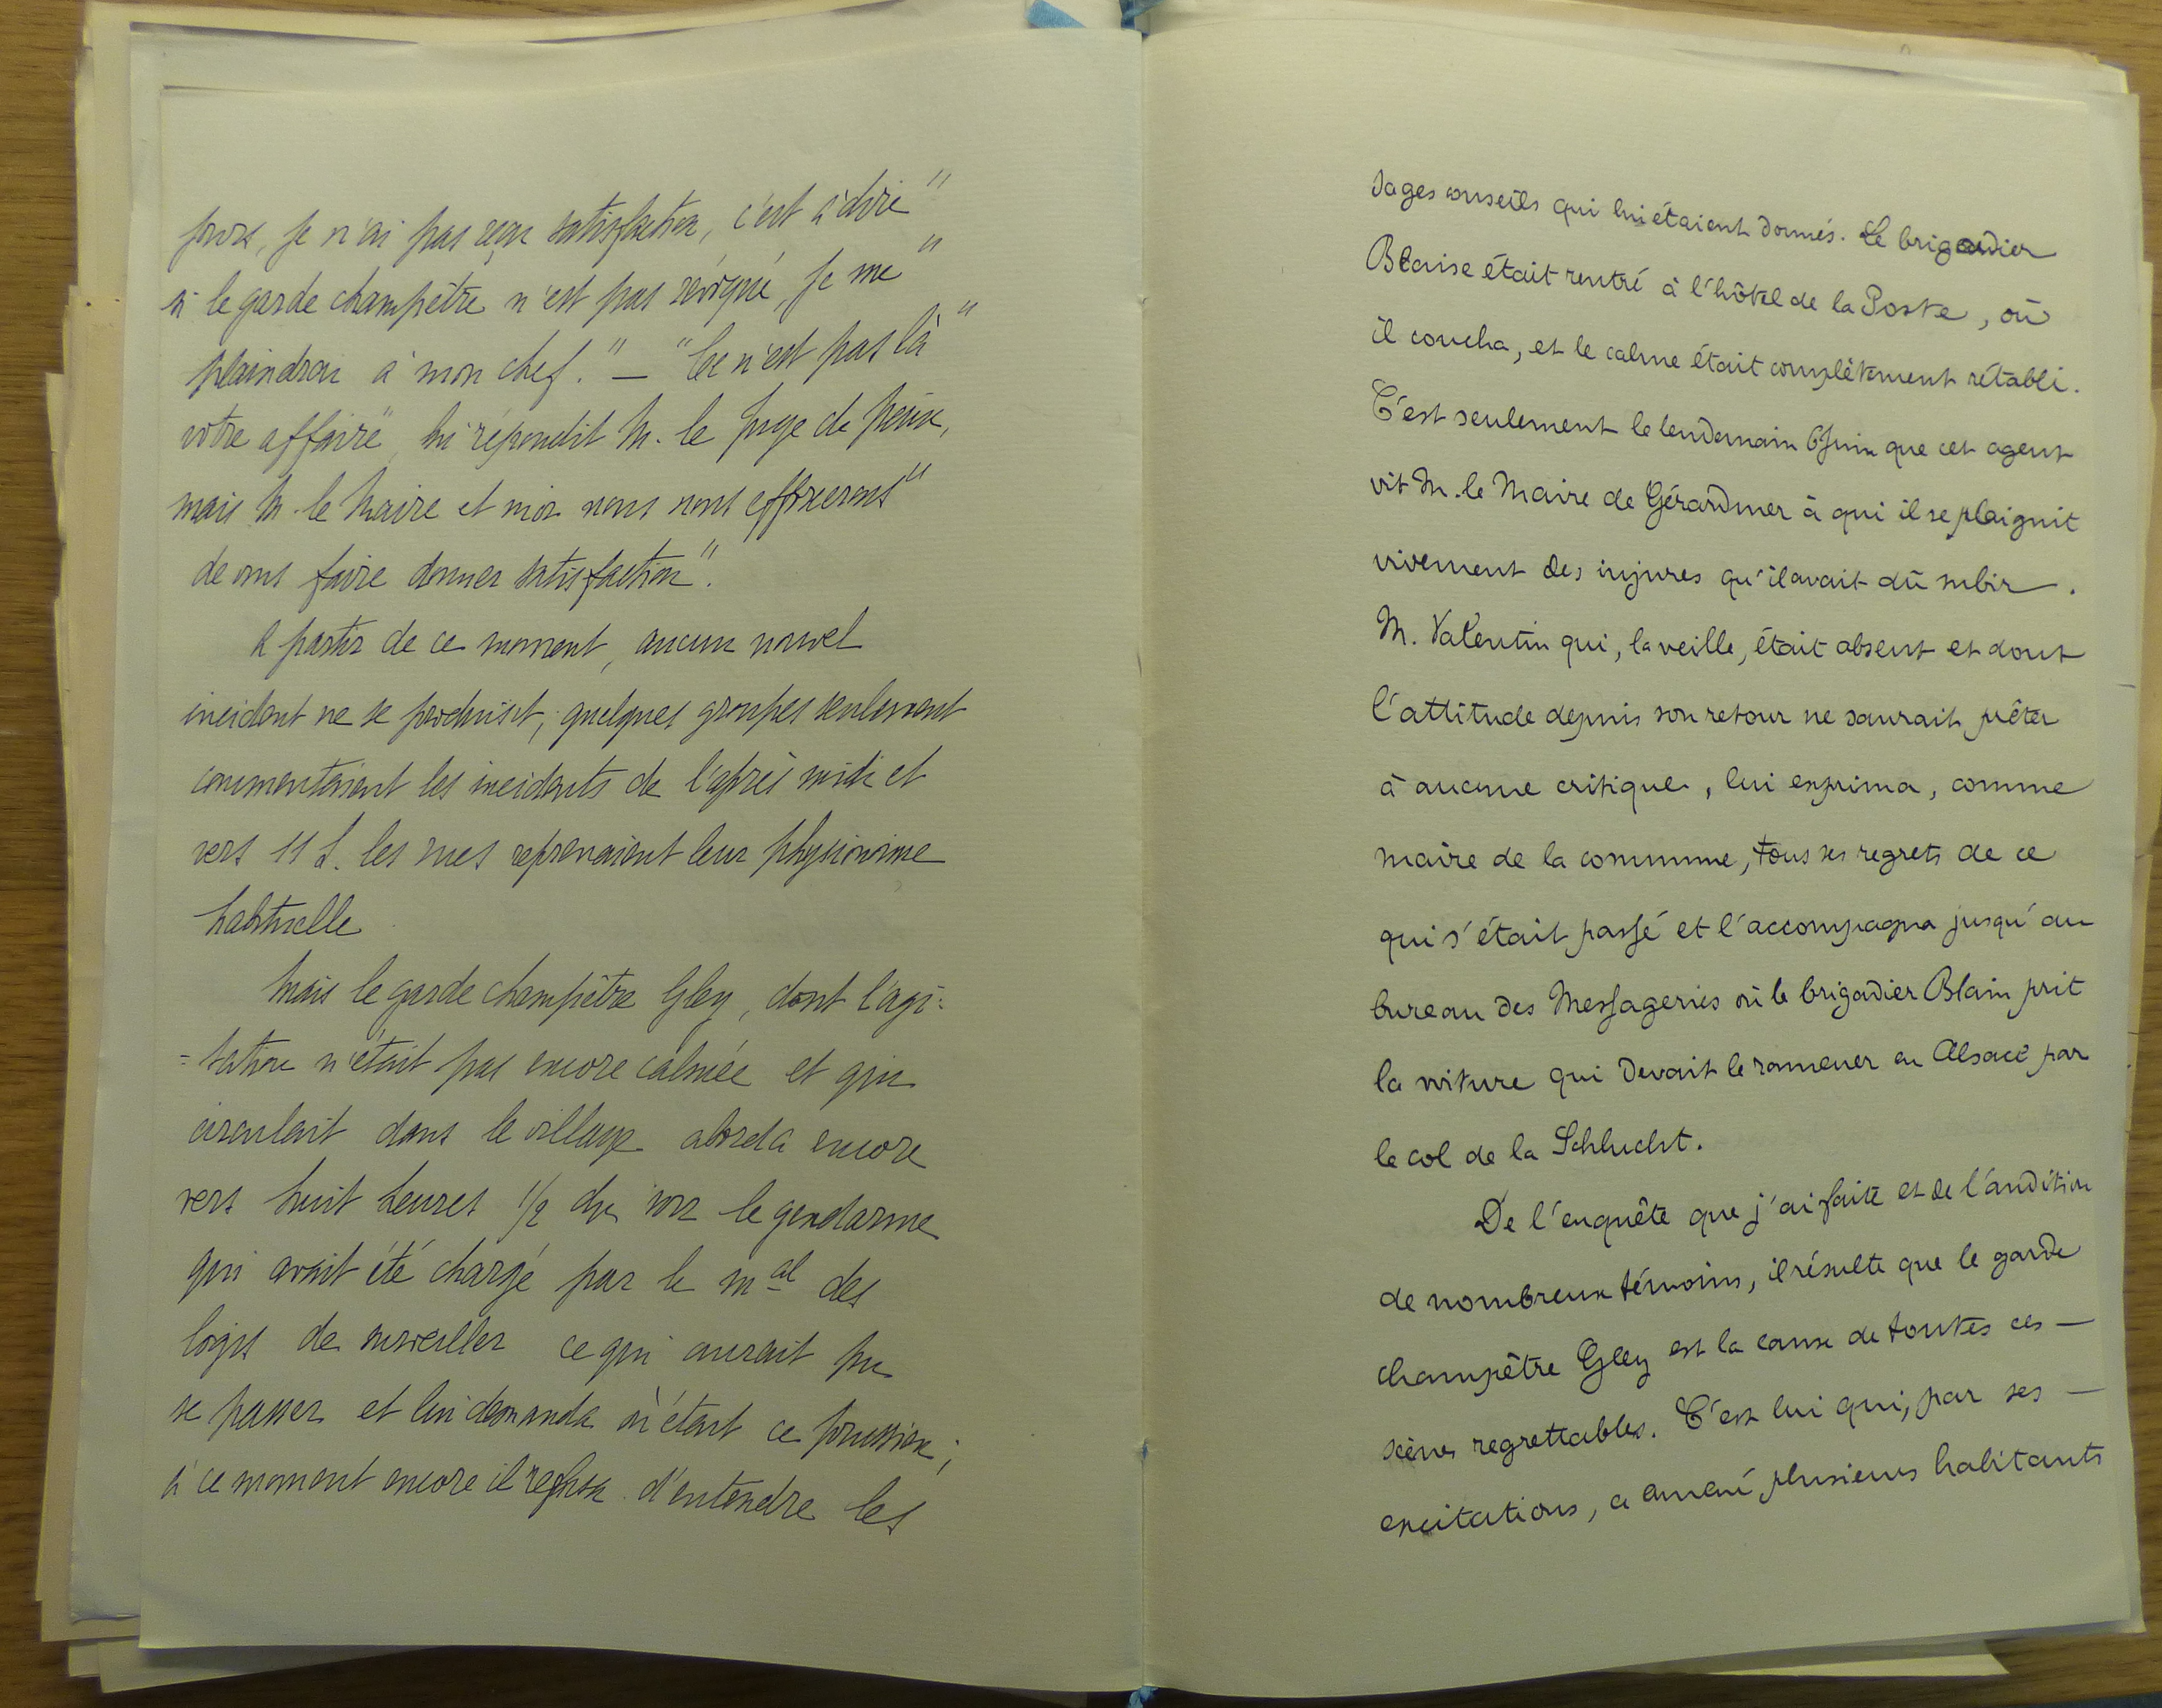 jours, je n'ai pas reçu satisfaction, c'est à dire "
si le garde champêtre n'est pas révoqué, je me "
plaindrai à mon chef." — "Ce n'est pas là "
votre affaire", lui répondit M. le juge de paix,
mais M. le Maire et moi nous nous efforcerons "
de vous faire donner satisfaction".
A partir de ce moment, aucun nouvel
incident ne se produisit, quelques groupes seulement
commentaient les incidents de l'après midi et
vers 11 h. les rues reprenaient leur physionomie
habituelle.
Mais le garde champêtre Gley, dont l'agi=
=tation n'était pas encore calmée et qui
circulait dans le village aborda encore
vers huit heures 1/2 du soir le gendarme
qui avait été chargé par le mal des
logis de surveiller ce qui aurait pu
se passer et lui demanda où était ce prussien;
à ce moment encore il refusa d'entendre les
sages conseils qui lui étaient donnés. Le brigadier
Blaise était rentré à l'hôtel de la Poste, où
il coucha, et le calme était complètement rétabli.
C'est seulement le lendemain 6 Juin que cet agent
vit M. le Maire de Gérardmer à qui il se plaignit
vivement des injures qu'il avait dû subir.
M. Valentin qui, la veille, était absent et dont
l'attitude depuis son retour ne saurait prêter
à aucune critique, lui exprima, comme
maire de la commune, tous ses regrets de ce
qui s'était passé et l'accompagna jusqu'au
bureau des Messageries où le brigadier Blain prit
la voiture qui devait le ramener en Alsace par
le col de la Schlucht.
De l'enquête que j'ai faite et de l'audition
de nombreux témoins, il résulte que le garde
champêtre Gley est la cause de toutes ces —
scènes regrettables. C'est lui qui, par ses —
excitations, a amené plusieurs habitants